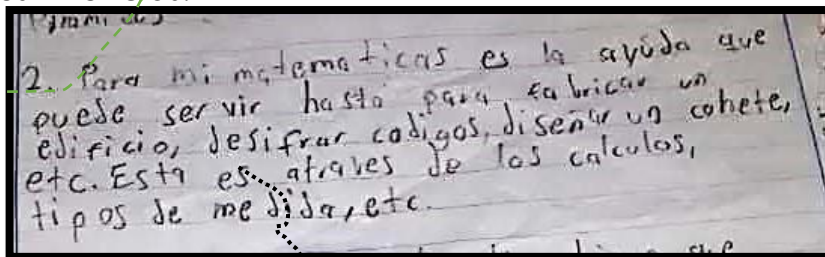 2. Para mi matematicas es la ayúda que
puede servir hasta para fabricar un
edificio, desifrar codigos, diseñar un cohete,
etc. Esta es atraves de los calculos,
tipos de medida, etc.
que